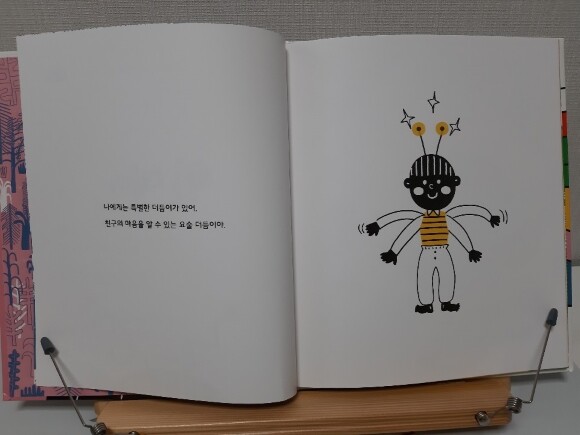 나에게는 특별한 더듬이가 있어.
친구의 마음을 알 수 있는 요술 더듬이야.